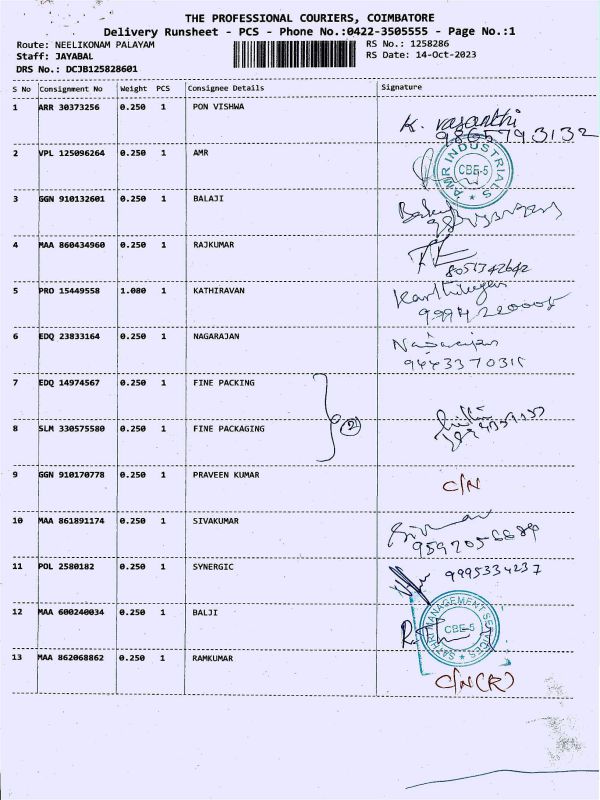 THE PROFESSIONAL COURIERS, COIMBATORE
Delivery Runsheet - PCS - Phone No.:0422-3505555 - Page No.:1
Route: NEELIKONAM PALAYAM RS No.: 1258286
Staff: JAYABAL RS Date: 14-Oct-2023
DRS No.: DCJB125828601
S No Consignment No Weight PCS Consignee Details Signature
1 ARR 30373256 0.250 1 PON VISHWA K. vasanthi
9865793132
2 VPL 125096264 0.250 1 AMR
AMR INDUSTRIALS
CBE-5
3 GGN 910132601 0.250 1 BALAJI
4 MAA 860434960 0.250 1 RAJKUMAR
5 PRO 15449558 1.080 1 KATHIRAVAN
6 EDQ 23833164 0.250 1 NAGARAJAN Nagarajan
7 EDQ 14974567 0.250 1 FINE PACKING
8 SLM 330575580 0.250 1 FINE PACKAGING
9 GGN 910170778 0.250 1 PRAVEEN KUMAR C/N
10 MAA 861891174 0.250 1 SIVAKUMAR
11 POL 2580182 0.250 1 SYNERGIC 9995334237
12 MAA 600240034 0.250 1 BALJI
MANAGEMENT SERVICES
CBE-5
13 MAA 862068862 0.250 1 RAMKUMAR C/N(R)